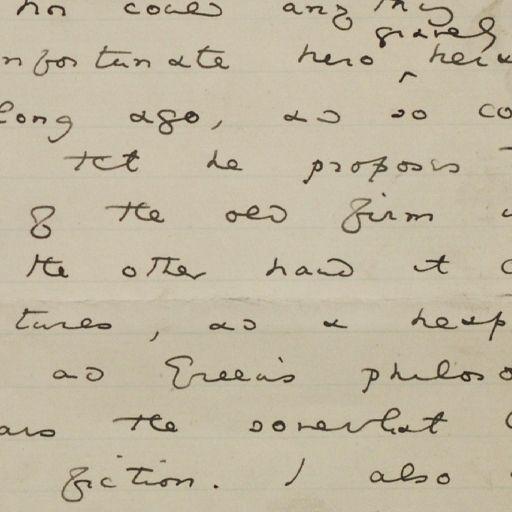 could any
gravely
unfortunate hero
long ago, as so
tct he proposes
of the old firm
the other hand it
tures, as a heap
as Green's philoso
ars the somewhat
fiction. I also